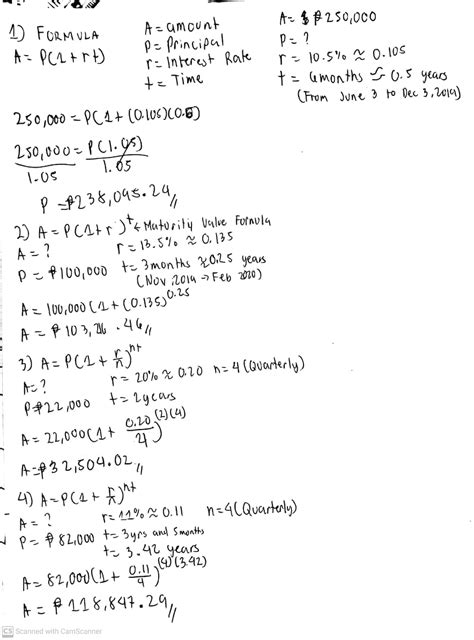 1) FORMULA
A = P(1+rt)
A = amount
P = Principal
r = Interest Rate
t = Time
A = ₱250,000
P = ?
r = 10.5% ≈ 0.105
t = 6months ≈ 0.5 years
(From June 3 to Dec 3, 2019)
250,000 = P(1+(0.105)(0.5)
250,000 = P(1.05)
1.05 1.05
P = ₱238,095.24//
2) A = P(1+r)^t ← Maturity Value Formula
A = ? r = 13.5% ≈ 0.135
P = ₱100,000 t = 3months ≈ 0.25 years
(Nov 2019 → Feb 2020)
A = 100,000(1+(0.135)^0.25
A = ₱103,216.46//
3) A = P(1+r/n)^nt
A = ? r = 20% ≈ 0.20 n = 4(Quarterly)
P = ₱22,000 t = 2years
A = 22,000(1+0.20/4)^(2)(4)
A = ₱32,504.02//
4) A = P(1+r/n)^nt
A = ? r = 11% ≈ 0.11 n = 4(Quarterly)
P = ₱82,000 t = 3yrs and 5months
t = 3.42 years
A = 82,000(1+0.11/4)^(4)(3.42)
A = ₱118,847.29//
CS Scanned with CamScanner